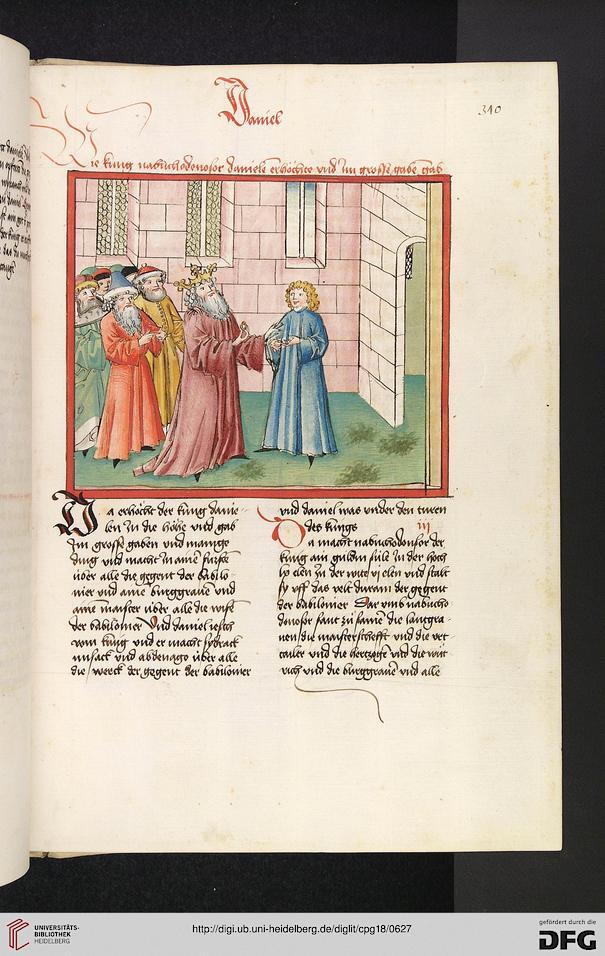 Daniel
310
Wie küng nabuchodonosor danielē erhöchte vnd Im grosse gabe gab
Da erhöcht der küng danie-
len In die höhe vnd gab
Im grosse gaben vnd mainge
ding vnd macht In aine fürste
über alle die gegent der babilo
nier vnd aine burggraue vnd
aine maister über alle die wise
der babiloner Vnd daniel iesch
vom küng vnd er macht sydrack
misack vnd abdenago über alle
die werck der gegent der babilonier
vnd daniel was vnder den türen
des küngs
iij
Da macht nabuchodonosor der
küng ain guldin sule In der höch
lx elen In der wite vj elen vnd stalt
sy vff das velt duram der gegent
der babiloner Dar vmb nabucho
donosor sant zu samē die
nen die maisterschefft vnd die ver
vnd die hertzogē vnd die wüt
rich vnd die burggrauē vnd alle
UNIVERSITÄTS-
BIBLIOTHEK
HEIDELBERG
http://digi.ub.uni-heidelberg.de/diglit/cpg18/0627
gefördert durch die
DFG